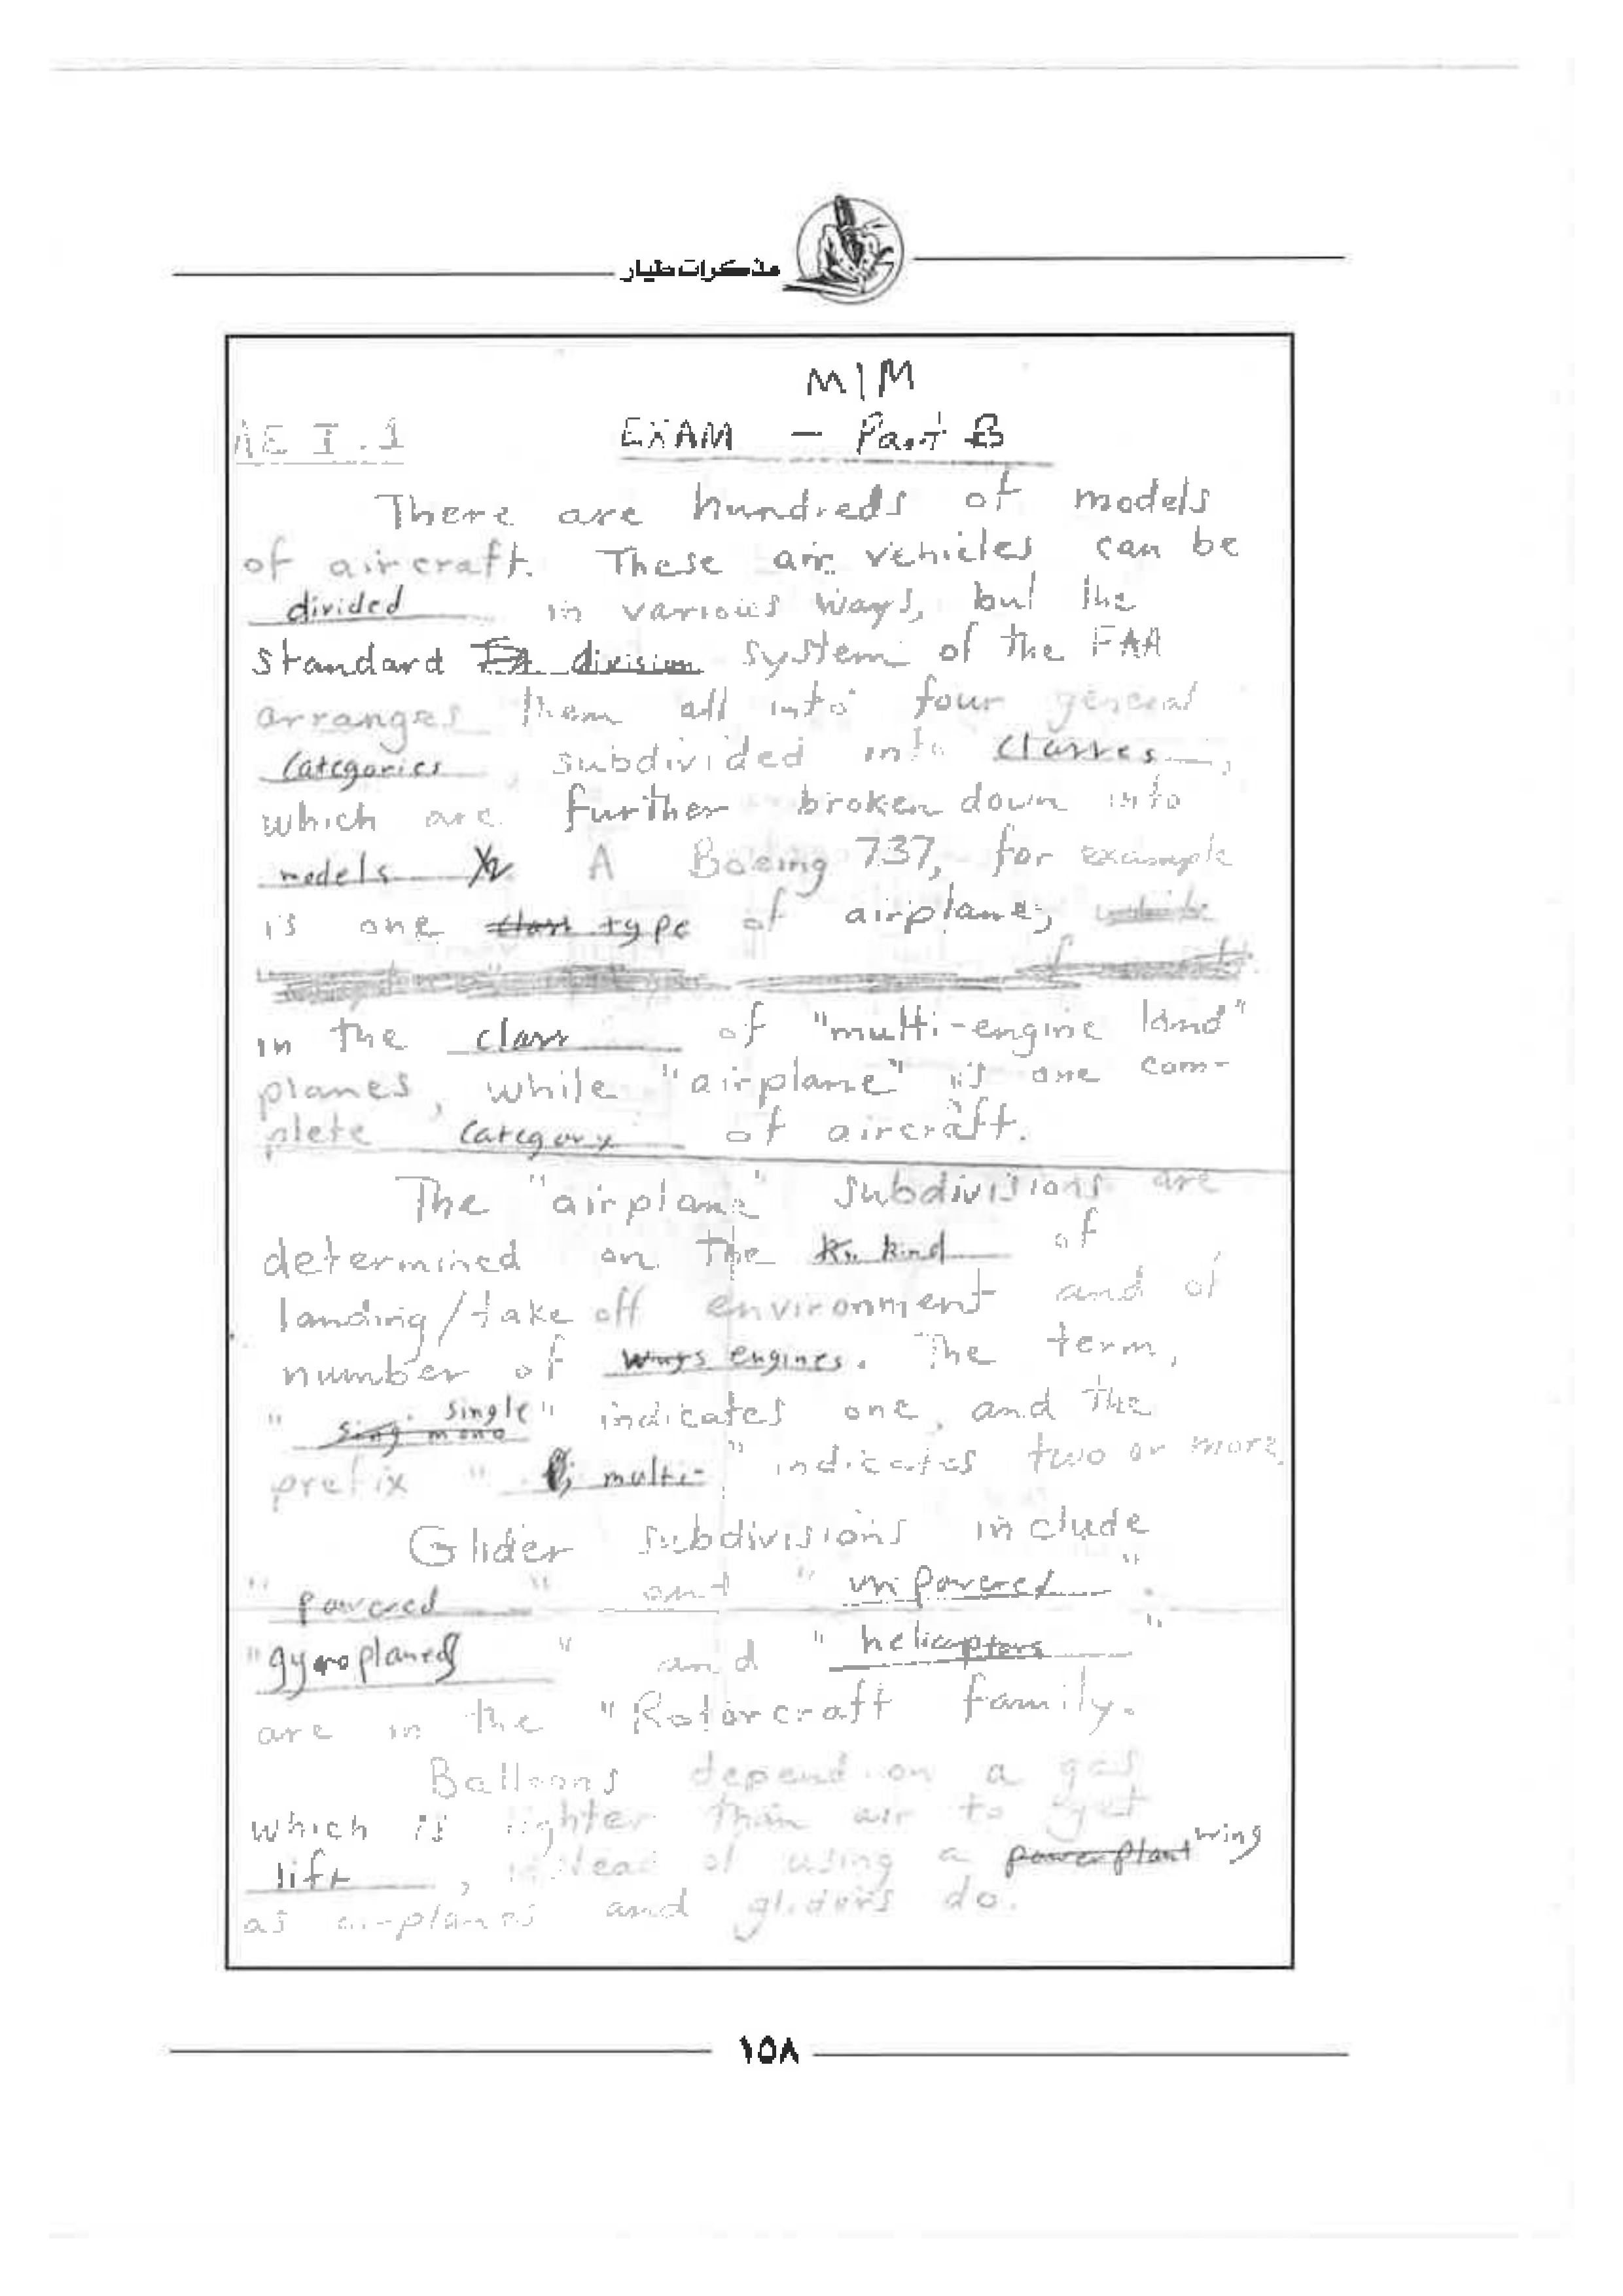 مذكرات طيار
MIM
AE I.1 EXAM - Part B
There are hundreds of models
of aircraft. These air vehicles can be
divided in various ways, but the
standard division system of the FAA
arranges them all into four general
Categories, subdivided into classes,
which are further broken down into
models A Boeing 737, for example
is one type of airplane,
in the class of "multi-engine land"
planes, while "airplane" is one com-
plete category of aircraft.
The "airplane" subdivisions are
determined on the kind of
landing/take off environment and of
number of engines. The term,
"single" indicates one, and the
prefix "multi-" indicates two or more.
Glider subdivisions include
"powered" and "unpowered".
"gyroplanes" and "helicopters"
are in the "Rotorcraft family.
Balloons depend on a gas
which is lighter than air to get
lift, instead of using a powerplant wing
as airplanes and gliders do.
١٥٨